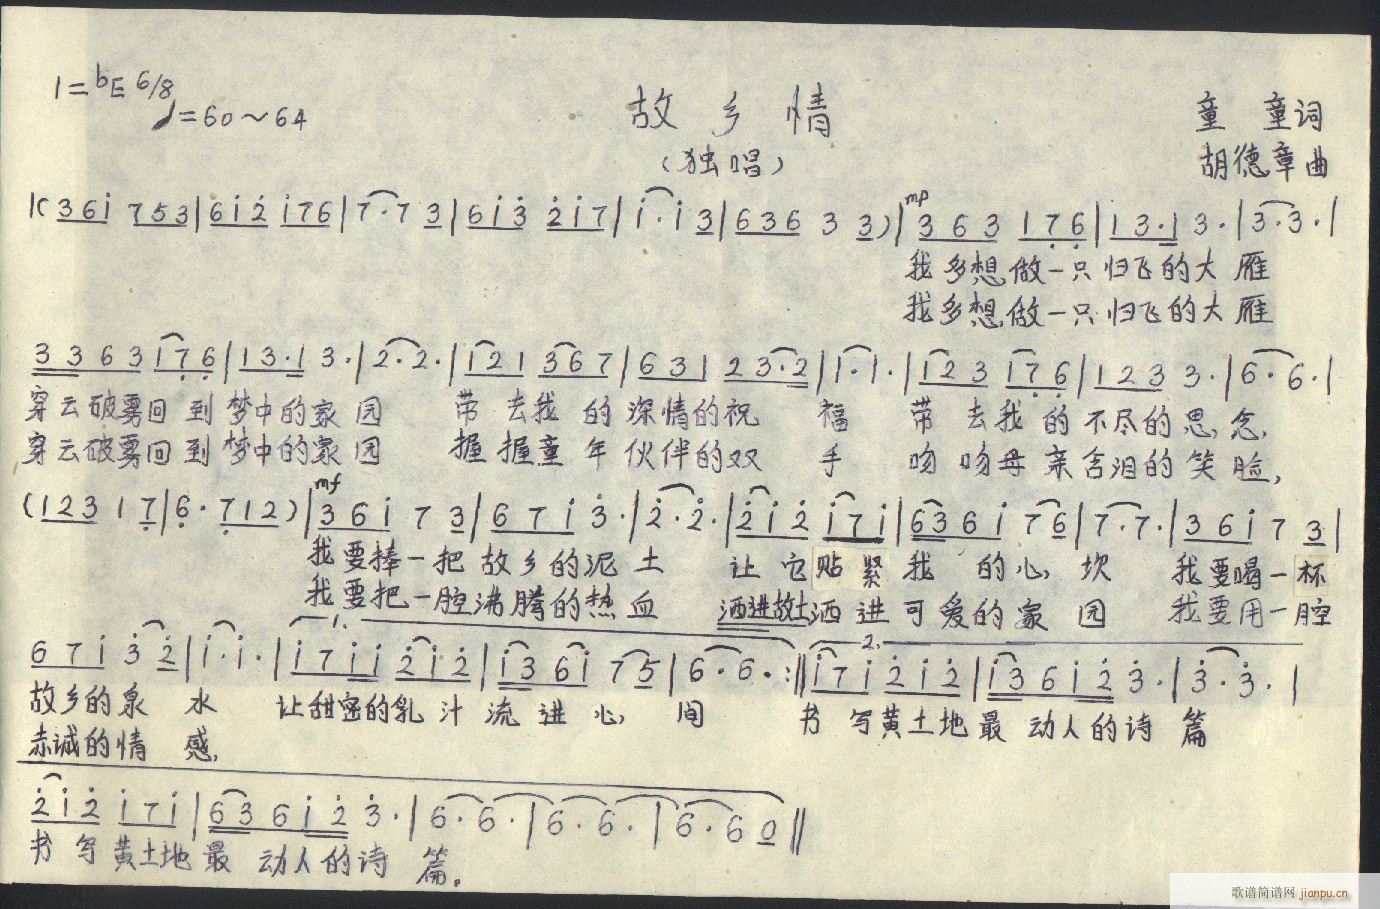 1=bE 6/8
♩=60～64
故乡情
(独唱)
童 童词
胡德章曲
|( 3 6 i 7 5 3 | 6 i 2 i 7 6 | 7 · 7 3 | 6 i 3 2 i 7 | i · i 3 | 6 3 6 3 3 ) | mp 3 6 3 1 7 6 | 1 3 · 1 3 · | 3 · 3 · |
我多想做一只归飞的大雁
我多想做一只归飞的大雁
3 3 6 3 1 7 6 | 1 3 · 1 3 · | 2 · 2 · | 1 2 1 3 6 7 | 6 3 1 2 3 · 2 | 1 · 1 · | 1 2 3 1 7 6 | 1 2 3 3 · | 6 · 6 · |
穿云破雾回到梦中的家园 带去我的深情的祝福 带去我的不尽的思念,
穿云破雾回到梦中的家园 握握童年伙伴的双手 吻吻母亲含泪的笑脸,
( 1 2 3 1 7 | 6 · 7 1 2 ) | mf 3 6 i 7 3 | 6 7 i 3 · | 2 · 2 · | 2 i 2 i 7 i | 6 3 6 i 7 6 | 7 · 7 · | 3 6 i 7 3 |
我要捧一把故乡的泥土 让它贴紧我的心坎 我要喝一杯
我要把一腔沸腾的热血 洒进故土洒进可爱的家园 我要用一腔
1. 2.
6 7 i 3 2 | i · i · | i 7 i i 2 i 2 | i 3 6 i 7 5 | 6 · 6 · :|| i 7 i 2 i 2 | i 3 6 i 2 3 · | 3 · 3 · |
故乡的泉水 让甜蜜的乳汁流进心间 书写黄土地最动人的诗篇
赤诚的情感,
2 i 2 i 7 i | 6 3 6 i 2 3 · | 6 · 6 · | 6 · 6 · | 6 · 6 0 ||
书写黄土地最动人的诗篇。
歌谱简谱网 jianpu.cn